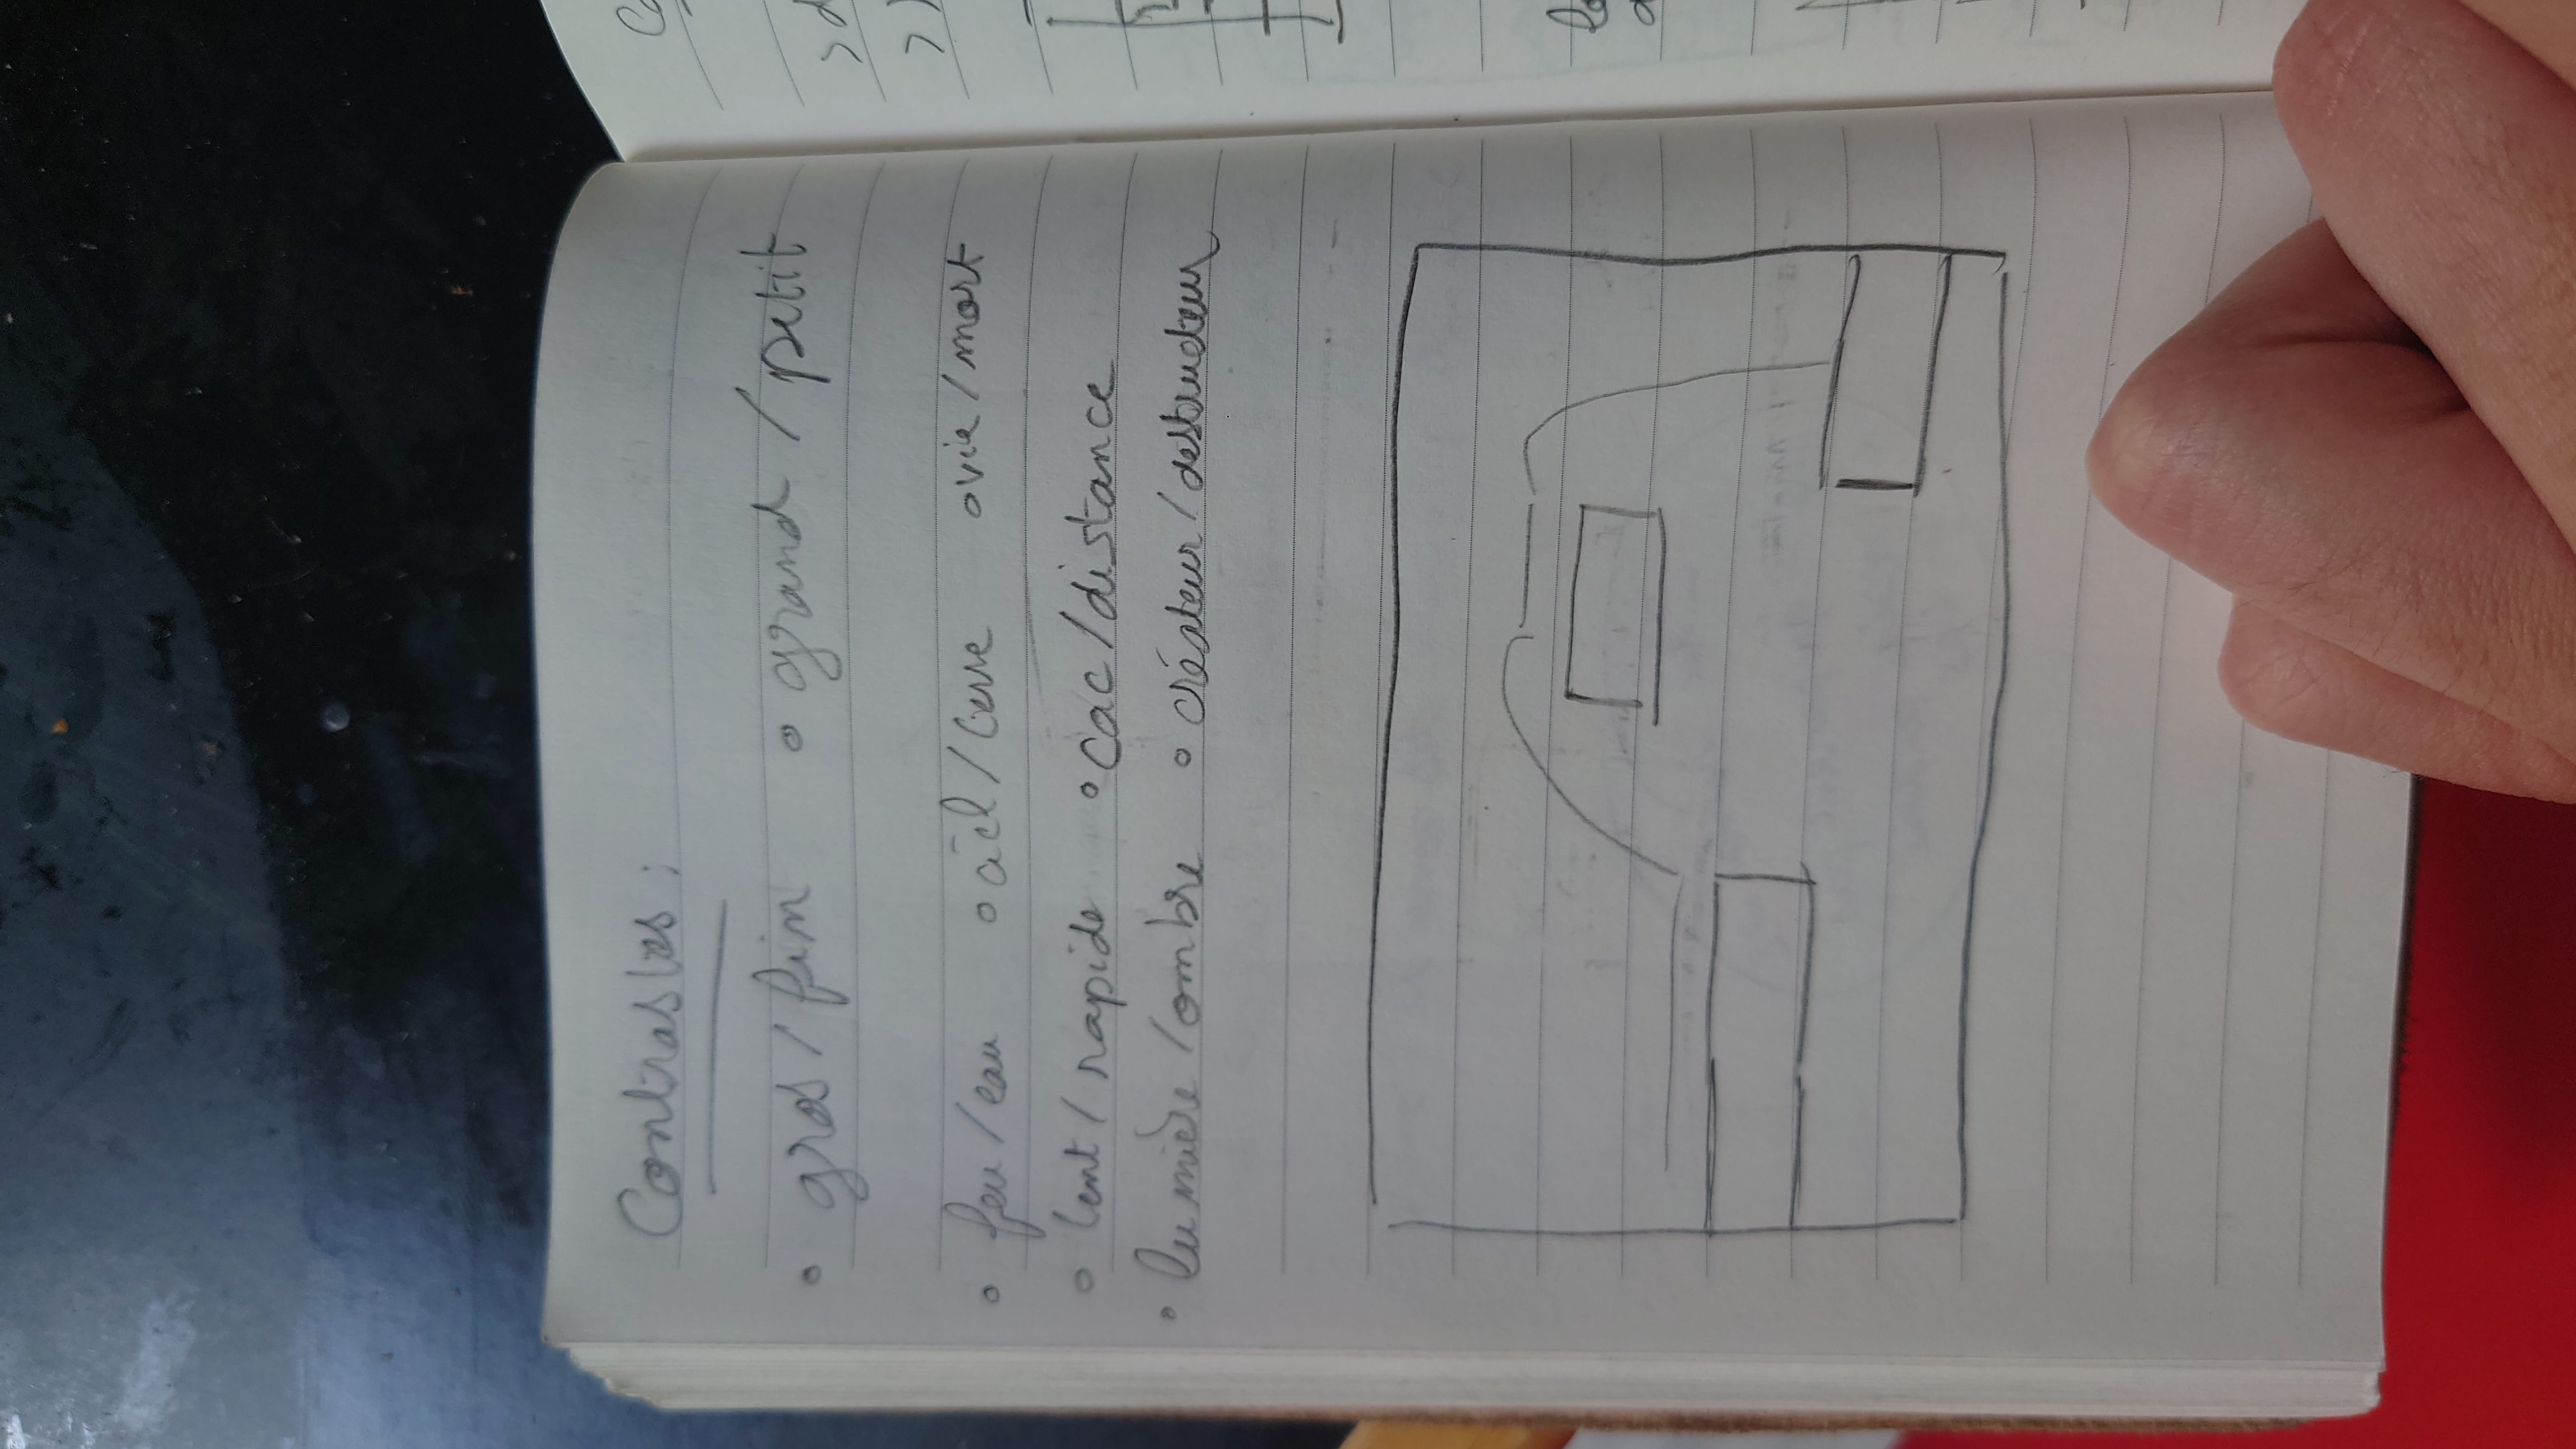 Contrastes :
° grds / fin ° grand / petit
° feu / eau ° ciel / terre ° vie / mort
° lent / rapide ° cac / distance
° lumière / ombre ° créateur / destructeur